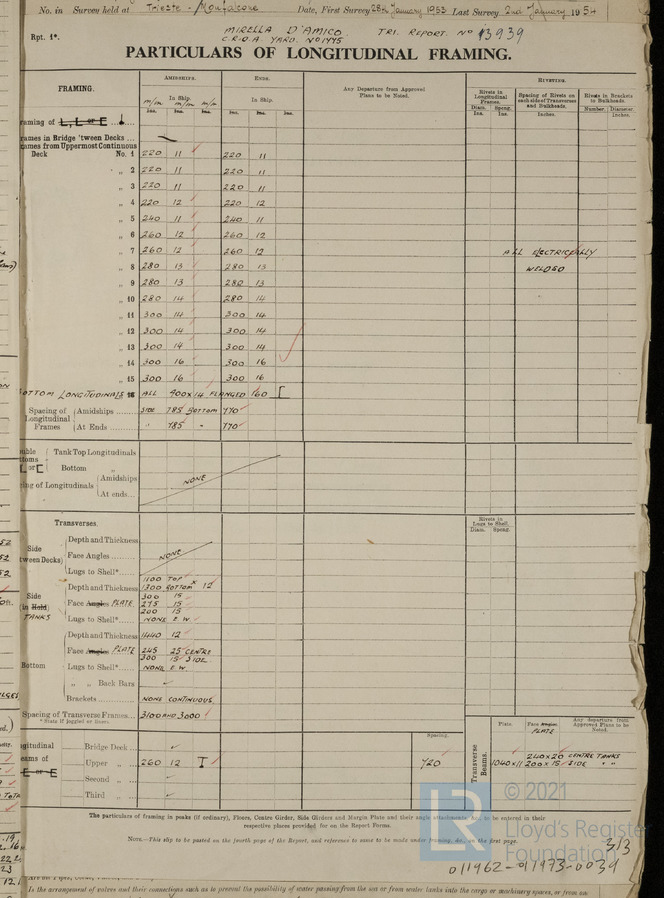 No. in Survey held at Trieste - Monfalcone Date, First Survey 28th January 1953 Last Survey 2nd January 1954
Rpt. 1*. MIRELLA D'AMICO TRI. REPORT. No 13939
C.R.D.A. YARD. No 1775
PARTICULARS OF LONGITUDINAL FRAMING.
FRAMING. AMIDSHIPS. ENDS. Any Departure from Approved Plans to be Noted. RIVETING.
In Ship. In Ship. Rivets in Longitudinal Frames. Spacing of Rivets on each side of Transverses and Bulkheads. Rivets in Brackets to Bulkheads.
m/m m/m m/m
Ins. Ins. Ins. Ins. Ins. Ins. Diam. Spcng. Ins. Ins. Inches. Number. Diameter. Inches.
raming of L, L or E
rames in Bridge 'tween Decks ...
ames from Uppermost Continuous
Deck No. 1 220 11 220 11
„ 2 220 11 220 11
„ 3 220 11 220 11
„ 4 220 12 220 12
„ 5 240 11 240 11
„ 6 260 12 260 12
„ 7 260 12 260 12 ALL ELECTRICALLY
„ 8 280 13 280 13 WELDED
„ 9 280 13 280 13
„ 10 280 14 280 14
„ 11 300 14 300 14
„ 12 300 14 300 14
„ 13 300 14 300 14
„ 14 300 16 300 16
„ 15 300 16 300 16
OTTOM LONGITUDINALS 16 ALL 400 x 14 FLANGED 160 [
Spacing of Longitudinal Frames Amidships SIDE 785 BOTTOM 770
At Ends " 785 " 770
uble ttoms Tank Top Longitudinals
L or [ Bottom „
ing of Longitudinals Amidships NONE
At ends...
Transverses. Rivets in Lugs to Shell. Diam. Spcng.
Side tween Decks) Depth and Thickness
Face Angles NONE
Lugs to Shell*
Side in Hold) TANKS Depth and Thickness 1100 TOP 1300 BOTTOM x 12
Face Angles PLATE 300 15
275 15
200 15
Lugs to Shell* NONE E.W.
Bottom Depth and Thickness 1440 12
Face Angles PLATE 245 25 CENTRE
300 15 SIDE
Lugs to Shell* NONE E.W.
„ „ Back Bars
Brackets NONE CONTINUOUS
Spacing of Transverse Frames... 3100 AND 3000
* State if joggled or liners.
gitudinal eams of Spacing. Transverse Beams. Plate. Face Angles PLATE Any departure from Approved Plans to be Noted.
Bridge Deck
Upper „ 260 12 I 720 1040 x 11 240 x 20 CENTRE TANKS
200 x 15 SIDE " "
Second „
Third „
The particulars of framing in peaks (if ordinary), Floors, Centre Girder, Side Girders and Margin Plate and their angle attachments &c., to be entered in their
respective places provided for on the Report Forms.
NOTE.—This slip to be pasted on the fourth page of the Report, and reference to same to be made under framing, &c., on the first page.
LR © 2021
Lloyd's Register
Foundation
3/3
011962-011973-0039
Is the arrangement of valves and their connections such as to prevent the possibility of water passing from the sea or from water tanks into the cargo or machinery spaces, or from one